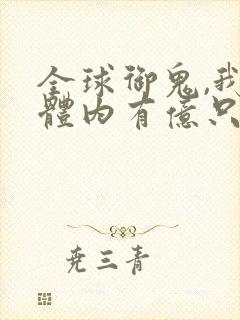 全球御鬼,我
體內有億只
尭三青